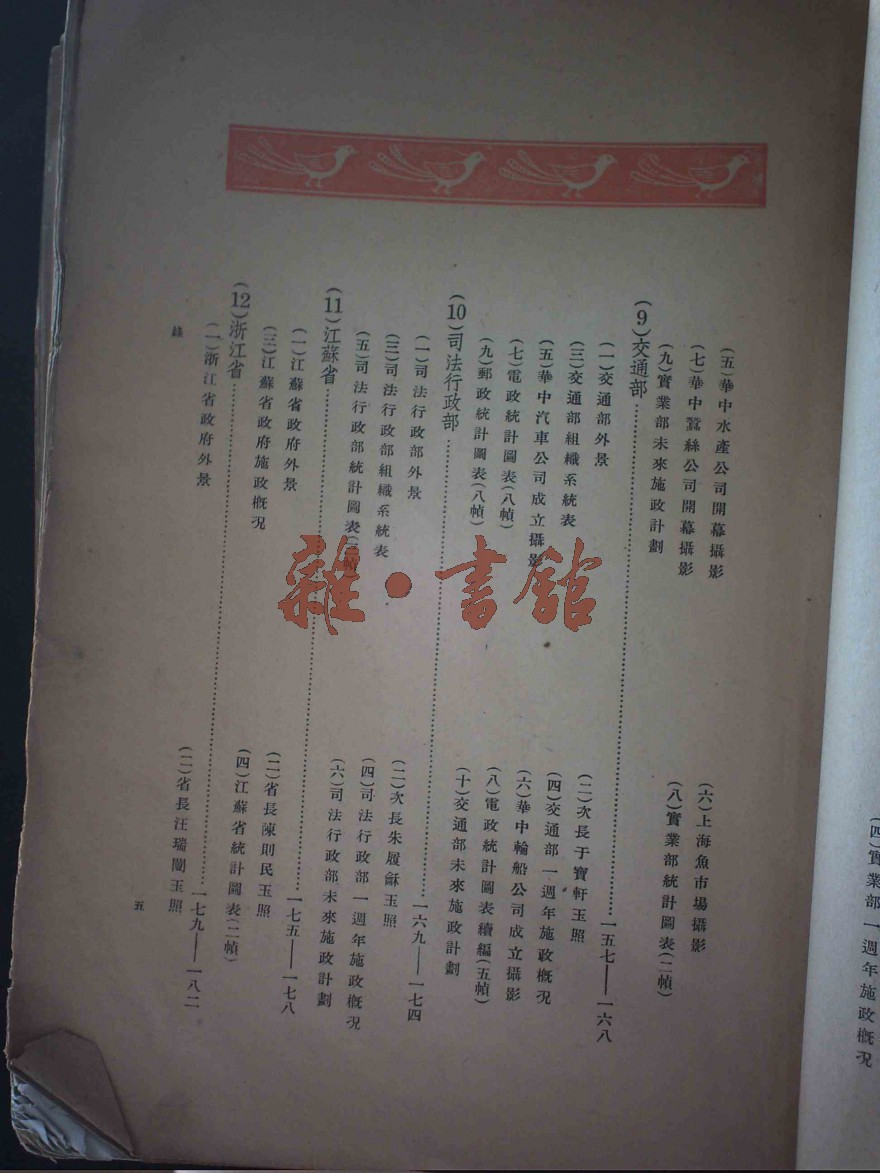 (五)華中水產公司開幕攝影
(六)上海魚市場攝影
(七)華中蠶絲公司開幕攝影
(八)實業部統計圖表(二幀)
(九)實業部未來施政計劃
(9)交通部……一五七——一六八
(一)交通部外景
(二)次長于寶軒玉照
(三)交通部組織系統表
(四)交通部一週年施政概況
(五)華中汽車公司成立攝影
(六)華中輪船公司成立攝影
(七)電政統計圖表(八幀)
(八)電政統計圖表續編(五幀)
(九)郵政統計圖表(八幀)
(十)交通部未來施政計劃
(10)司法行政部……一六九——一七四
(一)司法行政部外景
(二)次長朱履龢玉照
(三)司法行政部組織系統表
(四)司法行政部一週年施政概況
(五)司法行政部統計圖表(三幀)
(六)司法行政部未來施政計劃
(11)江蘇省……一七五——一七八
(一)江蘇省政府外景
(二)省長陳則民玉照
(三)江蘇省政府施政概況
(四)江蘇省統計圖表(二幀)
(12)浙江省……一七九——一八二
(一)浙江省政府外景
(二)省長汪瑞闓玉照
錄
五
(四)實業部一週年施政概況
雜·書館